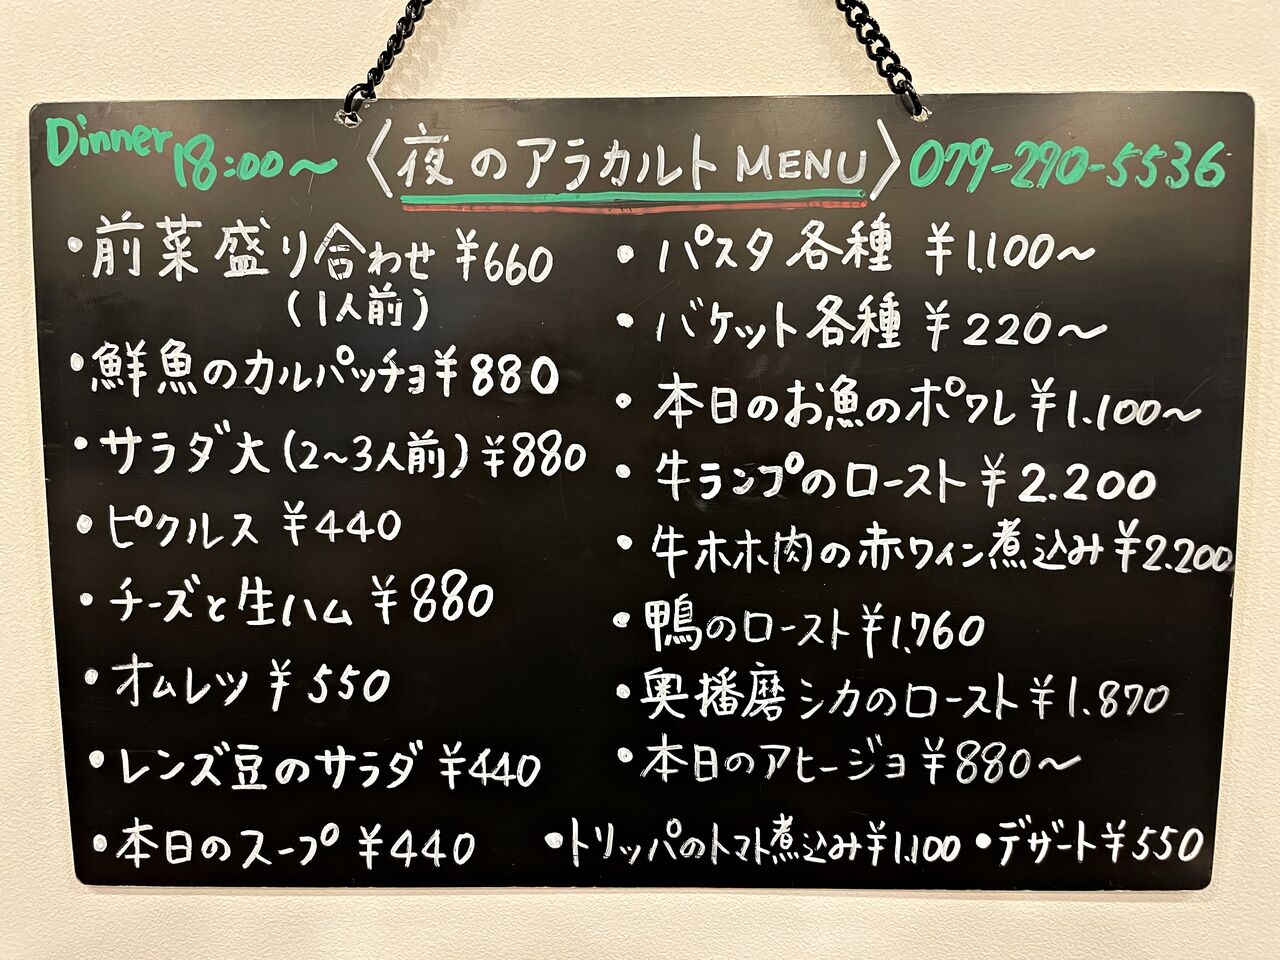 Dinner 18:00〜
〈夜のアラカルトMENU〉
079-290-5536
・前菜盛り合わせ ¥660
(1人前)
・鮮魚のカルパッチョ¥880
・サラダ大(2〜3人前)¥880
・ピクルス ¥440
・チーズと生ハム ¥880
・オムレツ ¥550
・レンズ豆のサラダ ¥440
・本日のスープ ¥440
・パスタ各種 ¥1.100〜
・バケット各種 ¥220〜
・本日のお魚のポワレ ¥1.100〜
・牛ランプのロースト ¥2.200
・牛ホホ肉の赤ワイン煮込み ¥2.200
・鴨のロースト ¥1.760
・奥播磨シカのロースト ¥1.870
・本日のアヒージョ ¥880〜
・トリッパのトマト煮込み¥1.100 ・デザート¥550